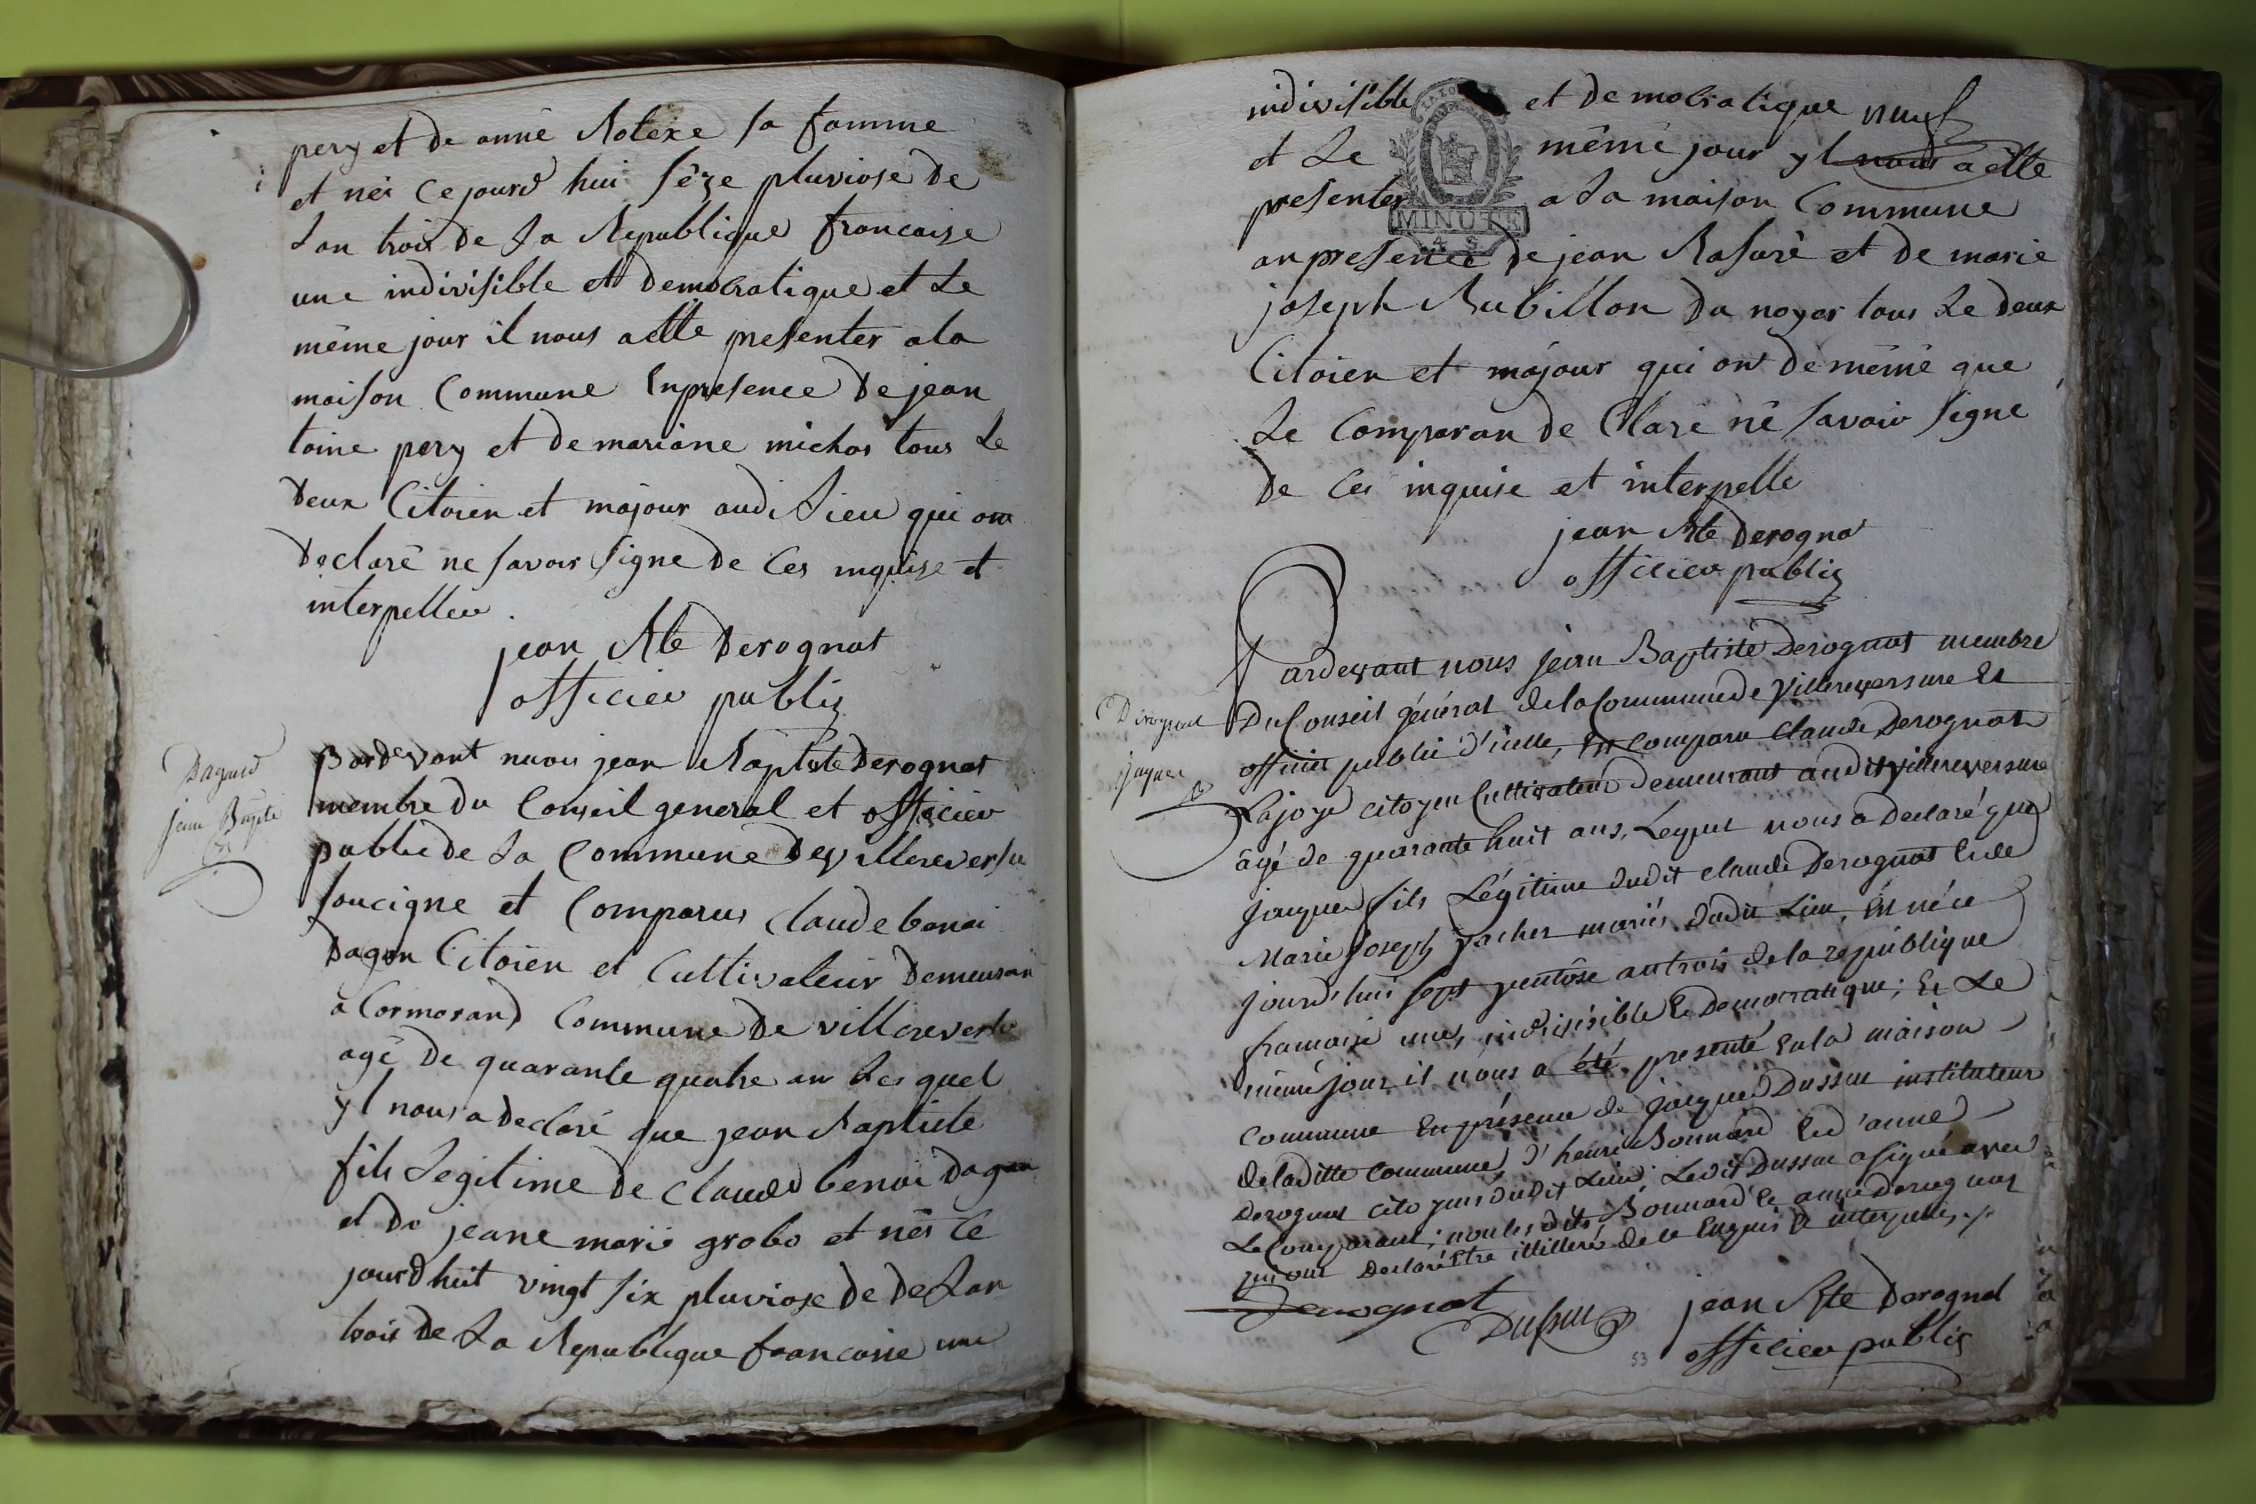 pery et de anne Rolere sa famme
et néi Ce jourd hui sêze pluviose de
Lan trois de La Republique francaise
une indivisible et democratique et Le
même jour il nous a ette presenter a la
maison Commune En presence De jean
toine pery et de mariane michos tous Le
deux Citoien et majour audi Lieu qui on
declaré ne savoir signe de Ces inquise et
interpelleu
jean Bte Derognat
officieu publiq
Dagand
jean Bapte
Pardevant nuous jean Baptiste Derognat
membre Du Conseil general et officieu
publi de La Commune De villereversu
soucigne et Comparus Claude benoi
Dagan Citoien et Cultivateur Demeuran
a Cormorand Commune De villereversu
agé De quarante quatre an Les quel
yl nous a declaré que jean Baptiste
fils Legitime De Claude benoi Dagan
et de jeane marie grobo et néi Ce
jourdhuit vingt six pluviose de de Lan
trois de La Republique francaise une
indivisible et democratique neuf
et Le même jour yl nous a ette
presenter a La maison Commune
MINUTE
4 S.
an presence de jean Rasuré et de marie
joseph Rubillon Du noyer tous Le deux
Citoien et majour qui on de même que
Le Comparan de Claré né savoir signe
de Ces inquise et interpelle
jean Bte Derogna
officieu publiq
Derognat
Jaques
Pardevant nous Jean Baptiste Derognat membre
Du Conseil général de la Commune de Villereversure Et
officier public d'icelle, Est Comparu Claude Derognat
Lajoye citoyen Cultivateur demeurant audit villereversure
âgé de quarante huit ans, Lequel nous a Declaré que
Jaques fils Légitime dudit Claude Derognat Et de
Marie Joseph Vacher mariés dudit Lieu, Est né ce
jourd'hui sept ventôse an trois de la république
francaise une, indivisible Et Democratique; Et Le
même jour il nous a été présenté En la maison
Commune En présence de Jacques Dussuc instituteur
de la ditte Commune, d'henri Bonnard Et d'anne
Derognat citoyens dudit Lieu. Ledit Dussuc a signé avec
Le Comparant; non lesdits Bonnard Et anne Derognat
qui ont Declaré Etre illitterés de ce Enquis Et interpellés
Derognat
Dussuc
jean Bte Derognat
officieu publiq
53